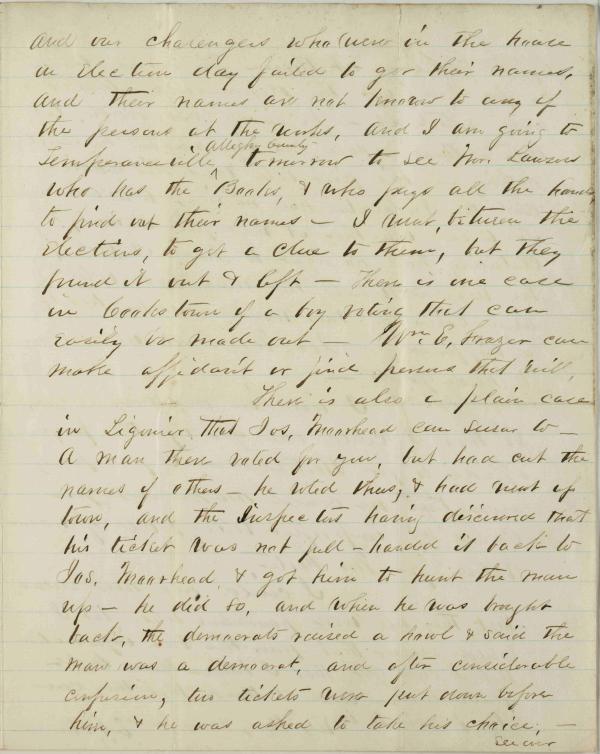 and our chalengers who were in the house
on Election day failed to get their names,
and their names are not known to any of
the persons at the works, and I am going to
allegheny county
Temperanceville, ^ tomorrow to see Wm. Lawson
who has the Books, & who pays all the hands
to find out their names — I went, between the
Elections, to get a clue to them, but they
found it out & left — There is one case
in Cookstown of a boy voting that can
easily be made out — Wm E. Frazer can
make affidavit or find persons that will,
— There is also a plain case
in Ligonier that Jos. Moorhead can swear to —
A man there voted for you, but had cut the
names of others — he voted thus, & had went up
town, and the Inspectors having discovered that
his ticket was not full — handed it back to
Jos. Moorhead & got him to hunt the man
up — he did so, and when he was brought
back, the democrats raised a howl & said the
man was a democrat, and after considerable
confusion, two tickets were put down before
him, & he was asked to take his choice, —
See over